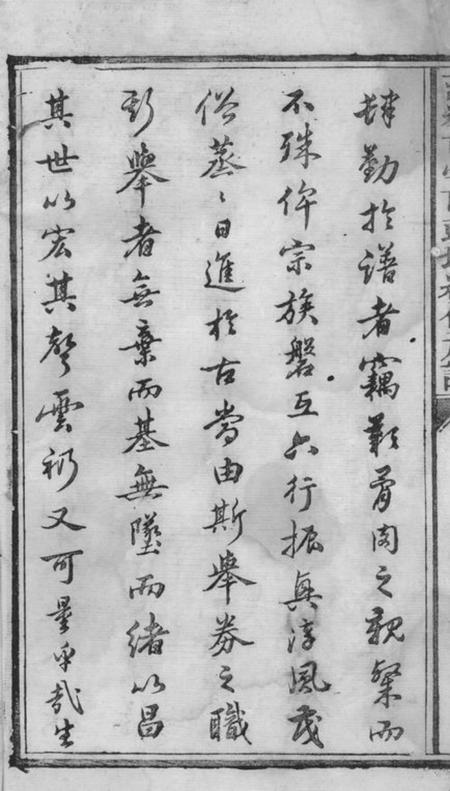 勤於譜者竊歎骨肉之親粲而
不殊俾宗族盤互六行振與淳風茂
俗蒸〻日進於古當由斯舉券之職
斯舉者無棄而基無墜而緒以昌
其世以宏其聲雲礽又可量乎哉生